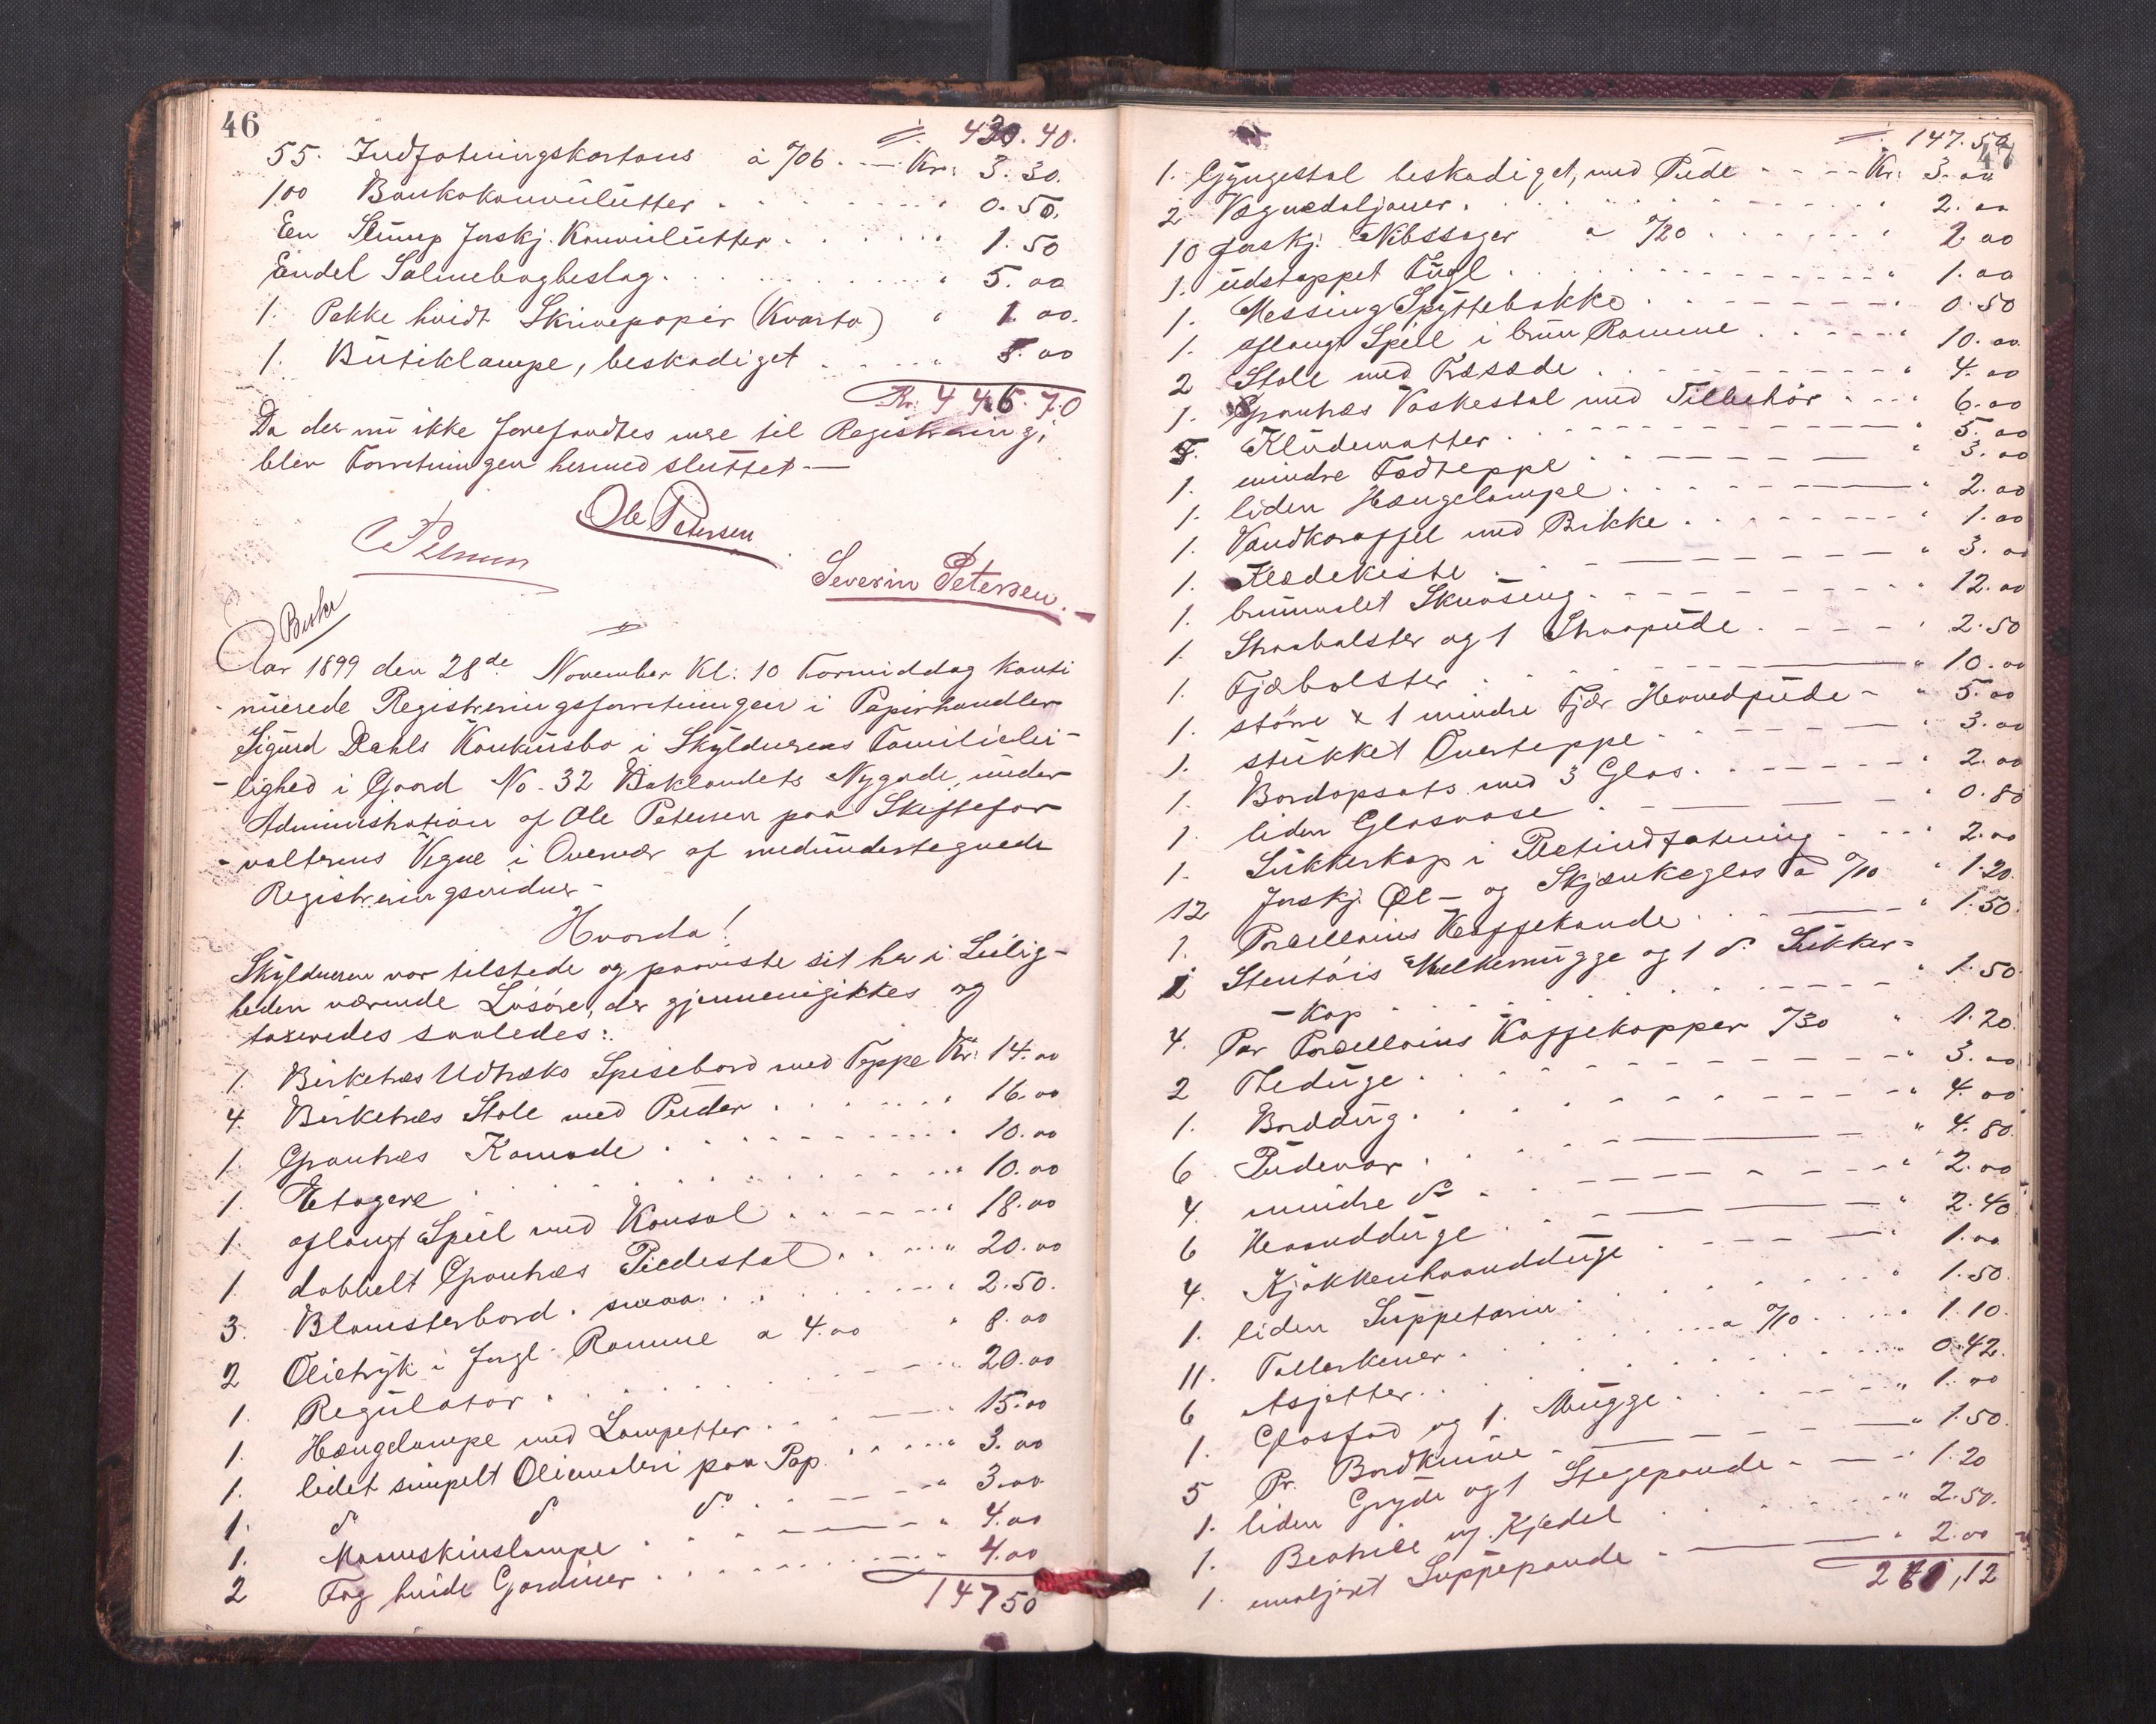 46
〃. 430.40.
55. Indfatningskartons à %06. — Kr: 3.30.
100 Bankokonvolutter . . . . " 0.50.
En Stump forskj. Konvolutter . . . . " 1.50
Endel Salmebogbeslag . . . . " 5.00
1. Pakke hvidt Skrivepapir (Kvarto) " 1.00.
1. Butiklampe, beskadiget . . . . " 5.00
Kr. 446.70
Da der nu ikke forefandtes mere til Registrering,
blev Forretningen hermed sluttet —
Ole Petersen
Severin Petersen.
Aar 1899 den 28de November Kl: 10 Formiddag konti
-nuerede Registreringsforretningen i Papirhandler
Sigurd Dahls Konkursbo i Skyldnerens Familielei-
-lighed i Gaard No. 32 Baklandets Nygade, under
Administration af Ole Petersen paa Skiftefor
-valterens Vegne i Overvær af medundertegnede
Registreringsvidner -
Hvorda!
Skyldneren var tilstede og paaviste sit her i Leilig-
heden værende Løsøre, der gjennemgikkes og
taxeredes saaledes:.
1. Birketræs Udtræks Spisebord med Teppe Kr: 14.00
4. Birketræs Stole med Puder . . . . " 16.00
1. Grantræs Komode . . . . " 10.00
1. Etagere . . . . " 10.00
1. aflangt Speil med Konsol . . . . " 18.00
1. dobbelt Grantræs Piedestal . . . . " 20.00
3. Blomsterbord. smaa . . . . " 2.50.
2 Olietryk i forgl. Ramme a 4.00 " 8.00
1. Regulator . . . . " 20.00
1. Hængelampe med Lampetter . . . . " 15.00
1. lidet simpelt Oliemaleri paa Pap. . . . . " 3.00
1. do do do . . . . " 3.00
1. Maaneskinslampe . . . . " 4.00
2 Fag hvide Gardiner . . . . " 4.00
147 50
47
〃. 147.50
1. Gyngestol beskadiget, med Pude - - - - Kr: 3.00
2 Vægmedaljoner . . . . " 2.00
10 forskj. Nibssager a %20 . . . . " 2.00
1. udstoppet Fugl . . . . " 1.00
1. Messing Spyttebakke . . . . " 0.50
1. aflangt Speil i brun Ramme . . . . " 10.00
2 Stole med Træsæde . . . . " 4.00
1. Grantræs Vaskestol med Tilbehör . . . " 6.00
5. Kludematter . . . . " 5.00
1. mindre Fodteppe . . . . " 3.00
1. liden Hængelampe . . . . " 2.00
1. Vandkaraffel med Brikke . . . . " 1.00
1. Klædekiste . . . . " 3.00
1. brunmalet Skuvseng . . . . " 12.00
1. Straabolster og 1 Straapude . . . . " 2.50
1. Fjærbolster . . . . " 10.00
1. större & 1 mindre Fjær Hovedpude - " 5.00
1. stukket Overteppe . . . . " 3.00
1. Bordopsats med 3 Glas . . . . " 2.00
1. liden Glasvase . . . . " 0.80
1. Sukkerkop i Pletindfatning . . . . " 2.00
12 forskj. Øl - og Skjænkeglas a %10 " 1.20.
1. Porcellains Kaffekande . . . . " 1.50.
1 Stentöis Melkemugge og 1 do Sukker-
-kop . . . . " 1.50.
4. Par Porcellains Kaffekopper %30 " 1.20.
2 Theduge . . . . " 3.00
1. Borddug . . . . " 4.00
6 Pudevar . . . . " 4.80.
4. mindre do . . . . " 2.00
6 Haandduge . . . . " 2.40
4. Kjökkenhaandduge . . . . " 1.00
1. liden Suppeterin . . . . " 1.50.
11. Tallerkener . . . . a %10 . . . " 1.10.
6 Asjetter . . . . " 0.42.
1. Glasfad og 1. Mugge . . . . " 1.00
5 Pr. Bordknive . . . . " 1.50.
1. liden Gryde og 1 Stegepande . . . . " 1.20
1. Kjedel . . . . " 2.50.
1. emaljeret Suppepande . . . . " 2.00
261,12